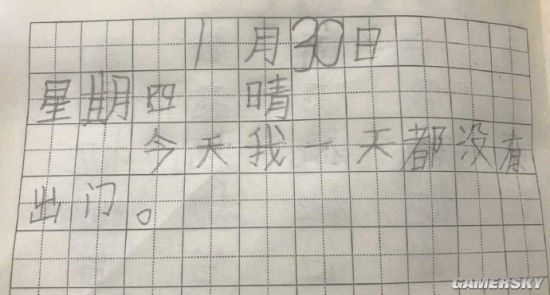 1月30日
星期四 晴
今天我一天都没有
出门。
GAMERSKY